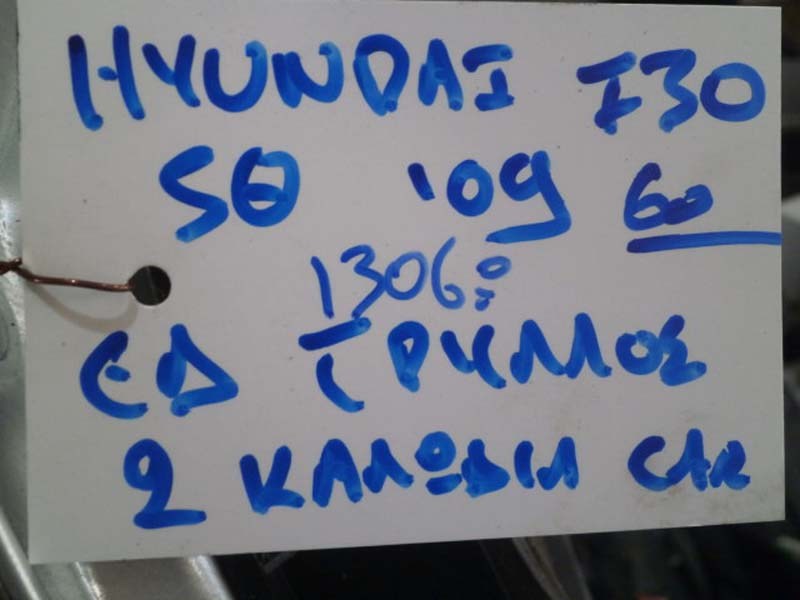 HYUNDAI I30
5Θ '09 60
1306
ΕΔ ΓΡΥΛΛΟΣ
2 ΚΑΛΩΔΙΑ CAR